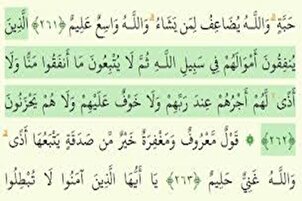 حَبَّةٍ ۗ وَاللَّهُ يُضَاعِفُ لِمَن يَشَاءُ ۗ وَاللَّهُ وَاسِعٌ عَلِيمٌ ﴿٢٦١﴾ الَّذِينَ
يُنفِقُونَ أَمْوَالَهُمْ فِي سَبِيلِ اللَّـهِ ثُمَّ لَا يُتْبِعُونَ مَا أَنفَقُوا مَنًّا وَلَا
أَذًى ۙ لَّهُمْ أَجْرُهُمْ عِندَ رَبِّهِمْ وَلَا خَوْفٌ عَلَيْهِمْ وَلَا هُمْ يَحْزَنُونَ
﴿٢٦٢﴾ ۞ قَوْلٌ مَّعْرُوفٌ وَمَغْفِرَةٌ خَيْرٌ مِّن صَدَقَةٍ يَتْبَعُهَا أَذًى ۗ
وَاللَّـهُ غَنِيٌّ حَلِيمٌ ﴿٢٦٣﴾ يَا أَيُّهَا الَّذِينَ آمَنُوا لَا تُبْطِلُوا